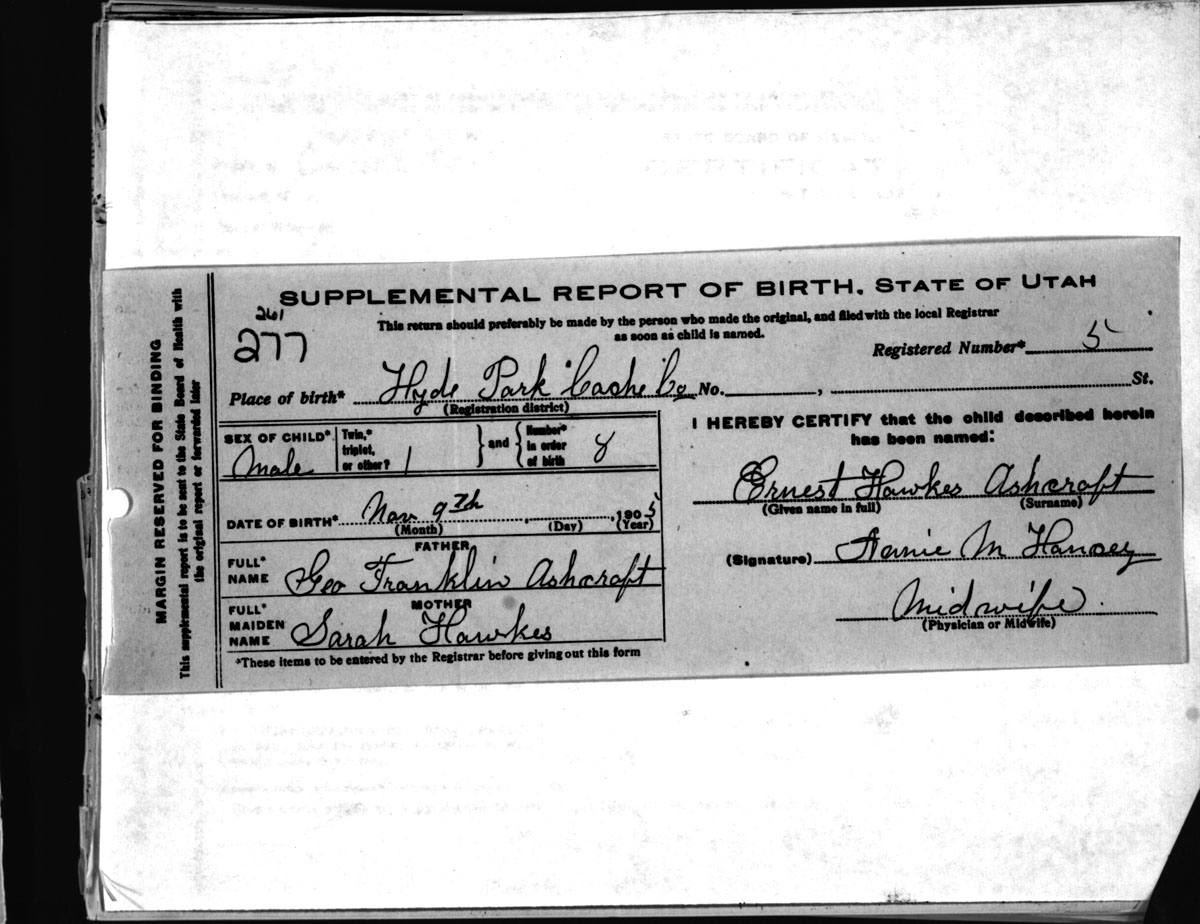 MARGIN RESERVED FOR BINDING
This supplemental report is to be sent to the State Board of Health with
the original report or forwarded later
SUPPLEMENTAL REPORT OF BIRTH, STATE OF UTAH
261
277
This return should preferably be made by the person who made the original, and filed with the local Registrar
as soon as child is named.
Registered Number* 5
Place of birth* Hyde Park Cache Co No. , St.
(Registration district)
SEX OF CHILD* Male
Twin,* triplet, or other? 1
and
Number* in order of birth 8
DATE OF BIRTH* Nov 9th , 1905
(Month) (Day) (Year)
FATHER
FULL* NAME Geo Franklin Ashcroft
MOTHER
FULL* MAIDEN NAME Sarah Hawkes
*These items to be entered by the Registrar before giving out this form
I HEREBY CERTIFY that the child described herein
has been named:
Ernest Hawkes Ashcroft
(Given name in full) (Surname)
(Signature) M
Midwife.
(Physician or Midwife)